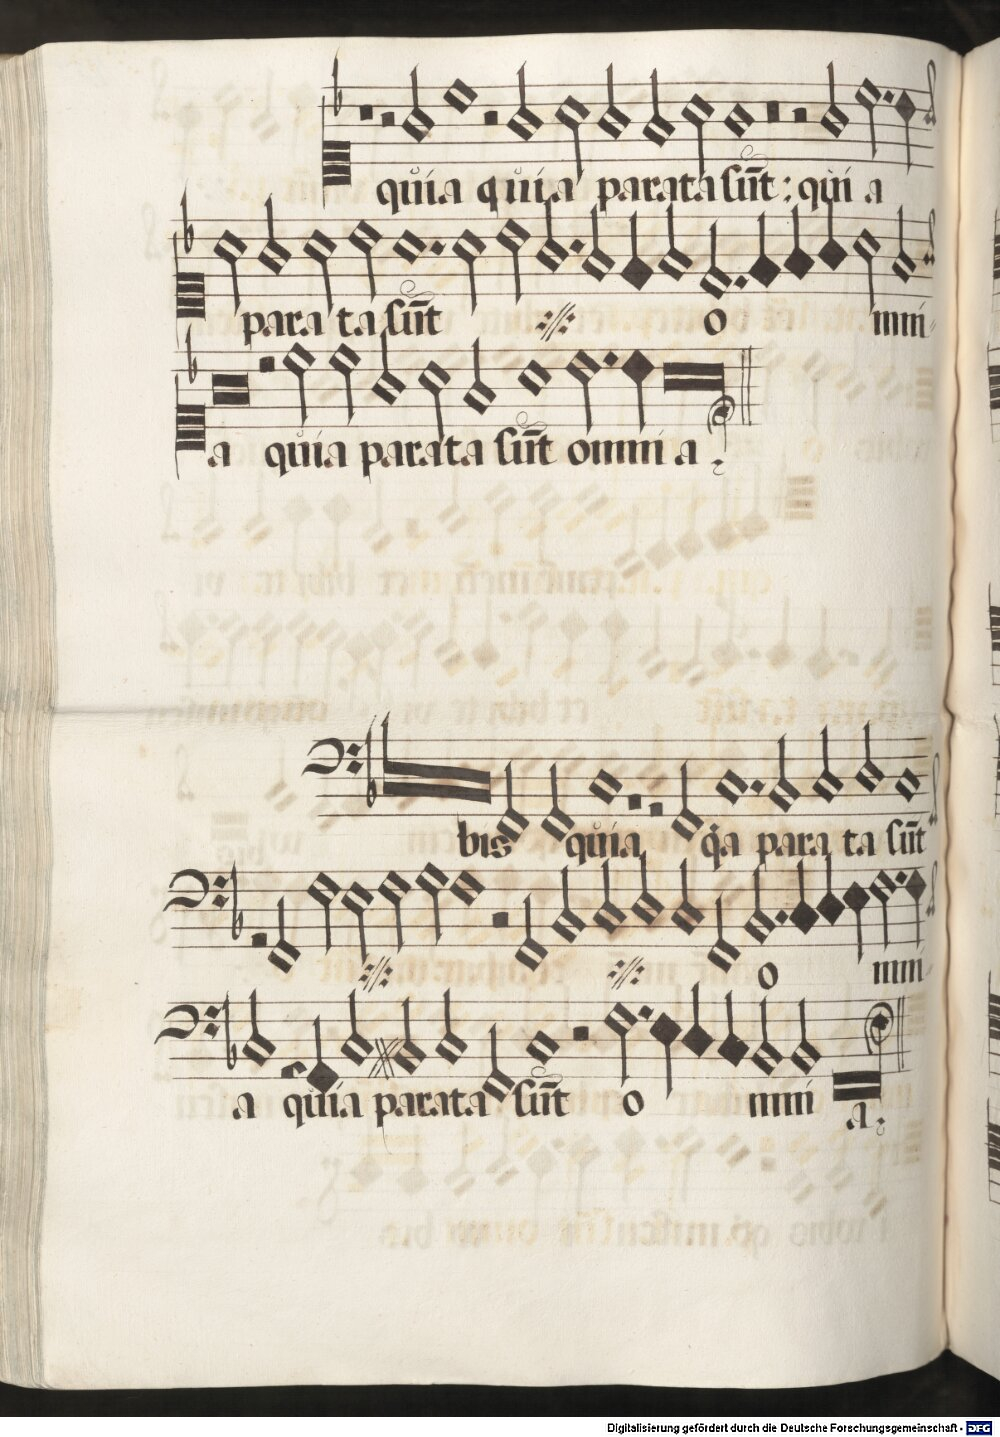 quia quia parata sūt: qui a
para ta sūt ·//· o mni-
a quia parata sūt omni a.
bis quia qa para ta sūt
·//· ·//· o mni-
a quia parata sūt o mni a.
Digitalisierung gefördert durch die Deutsche Forschungsgemeinschaft - DFG